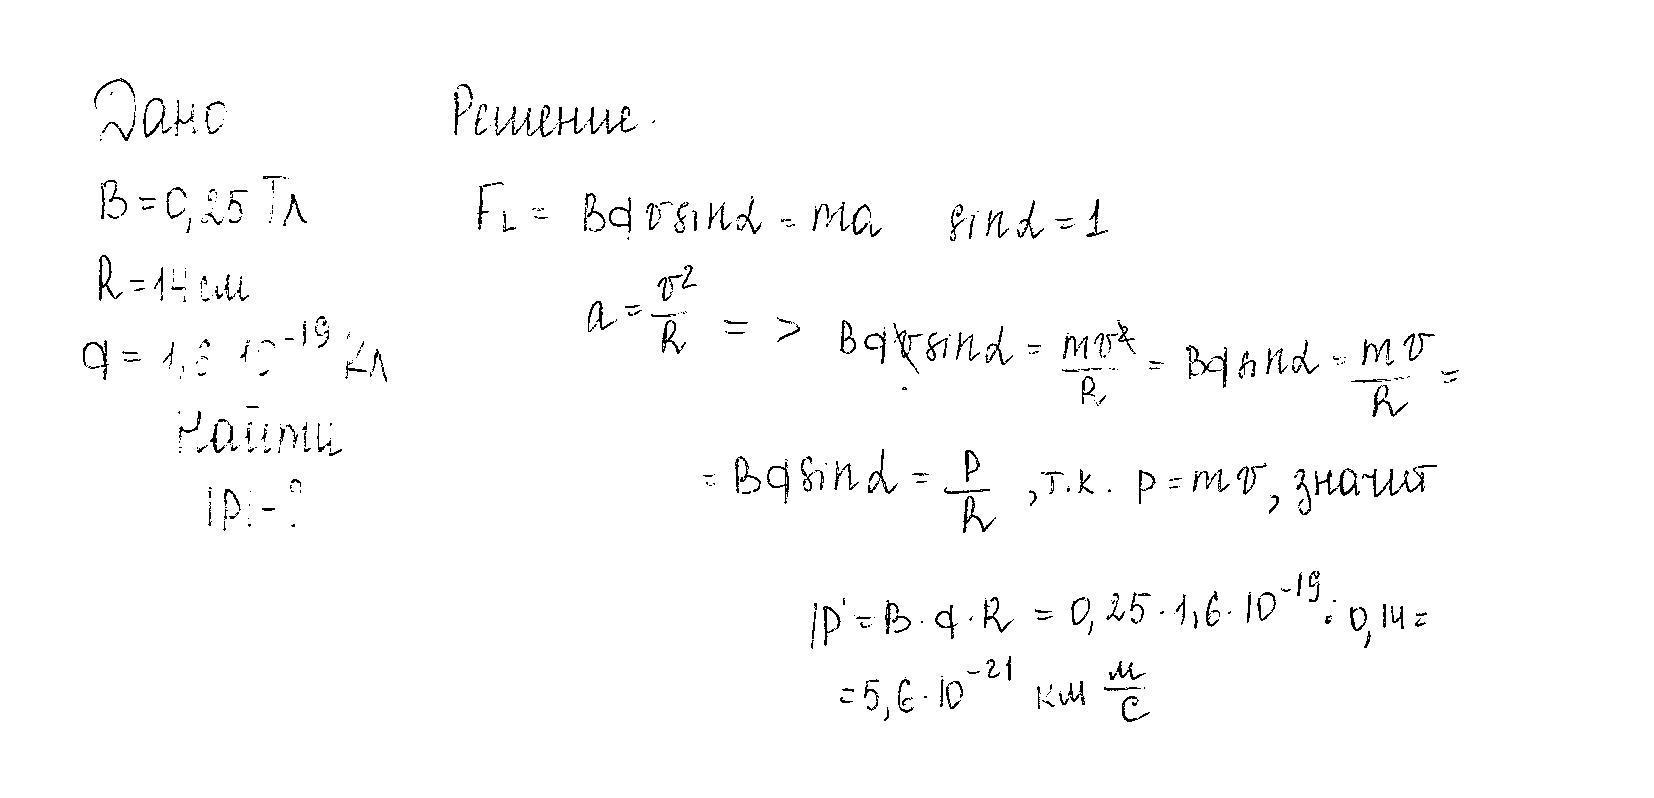 Дано
B = 0,25 Тл
R = 14 см
q = 1,6 · 10⁻¹⁹ Кл
Найти
|p| - ?
Решение.
F_L = Bqv sinα = ma sinα = 1
a = v²/R => Bqv sinα = mv²/R = Bq sinα = mv/R =
= Bq sinα = p/R , т.к. p = mv, значит
|p| = B · q · R = 0,25 · 1,6 · 10⁻¹⁹ · 0,14 =
= 5,6 · 10⁻²¹ км м/с